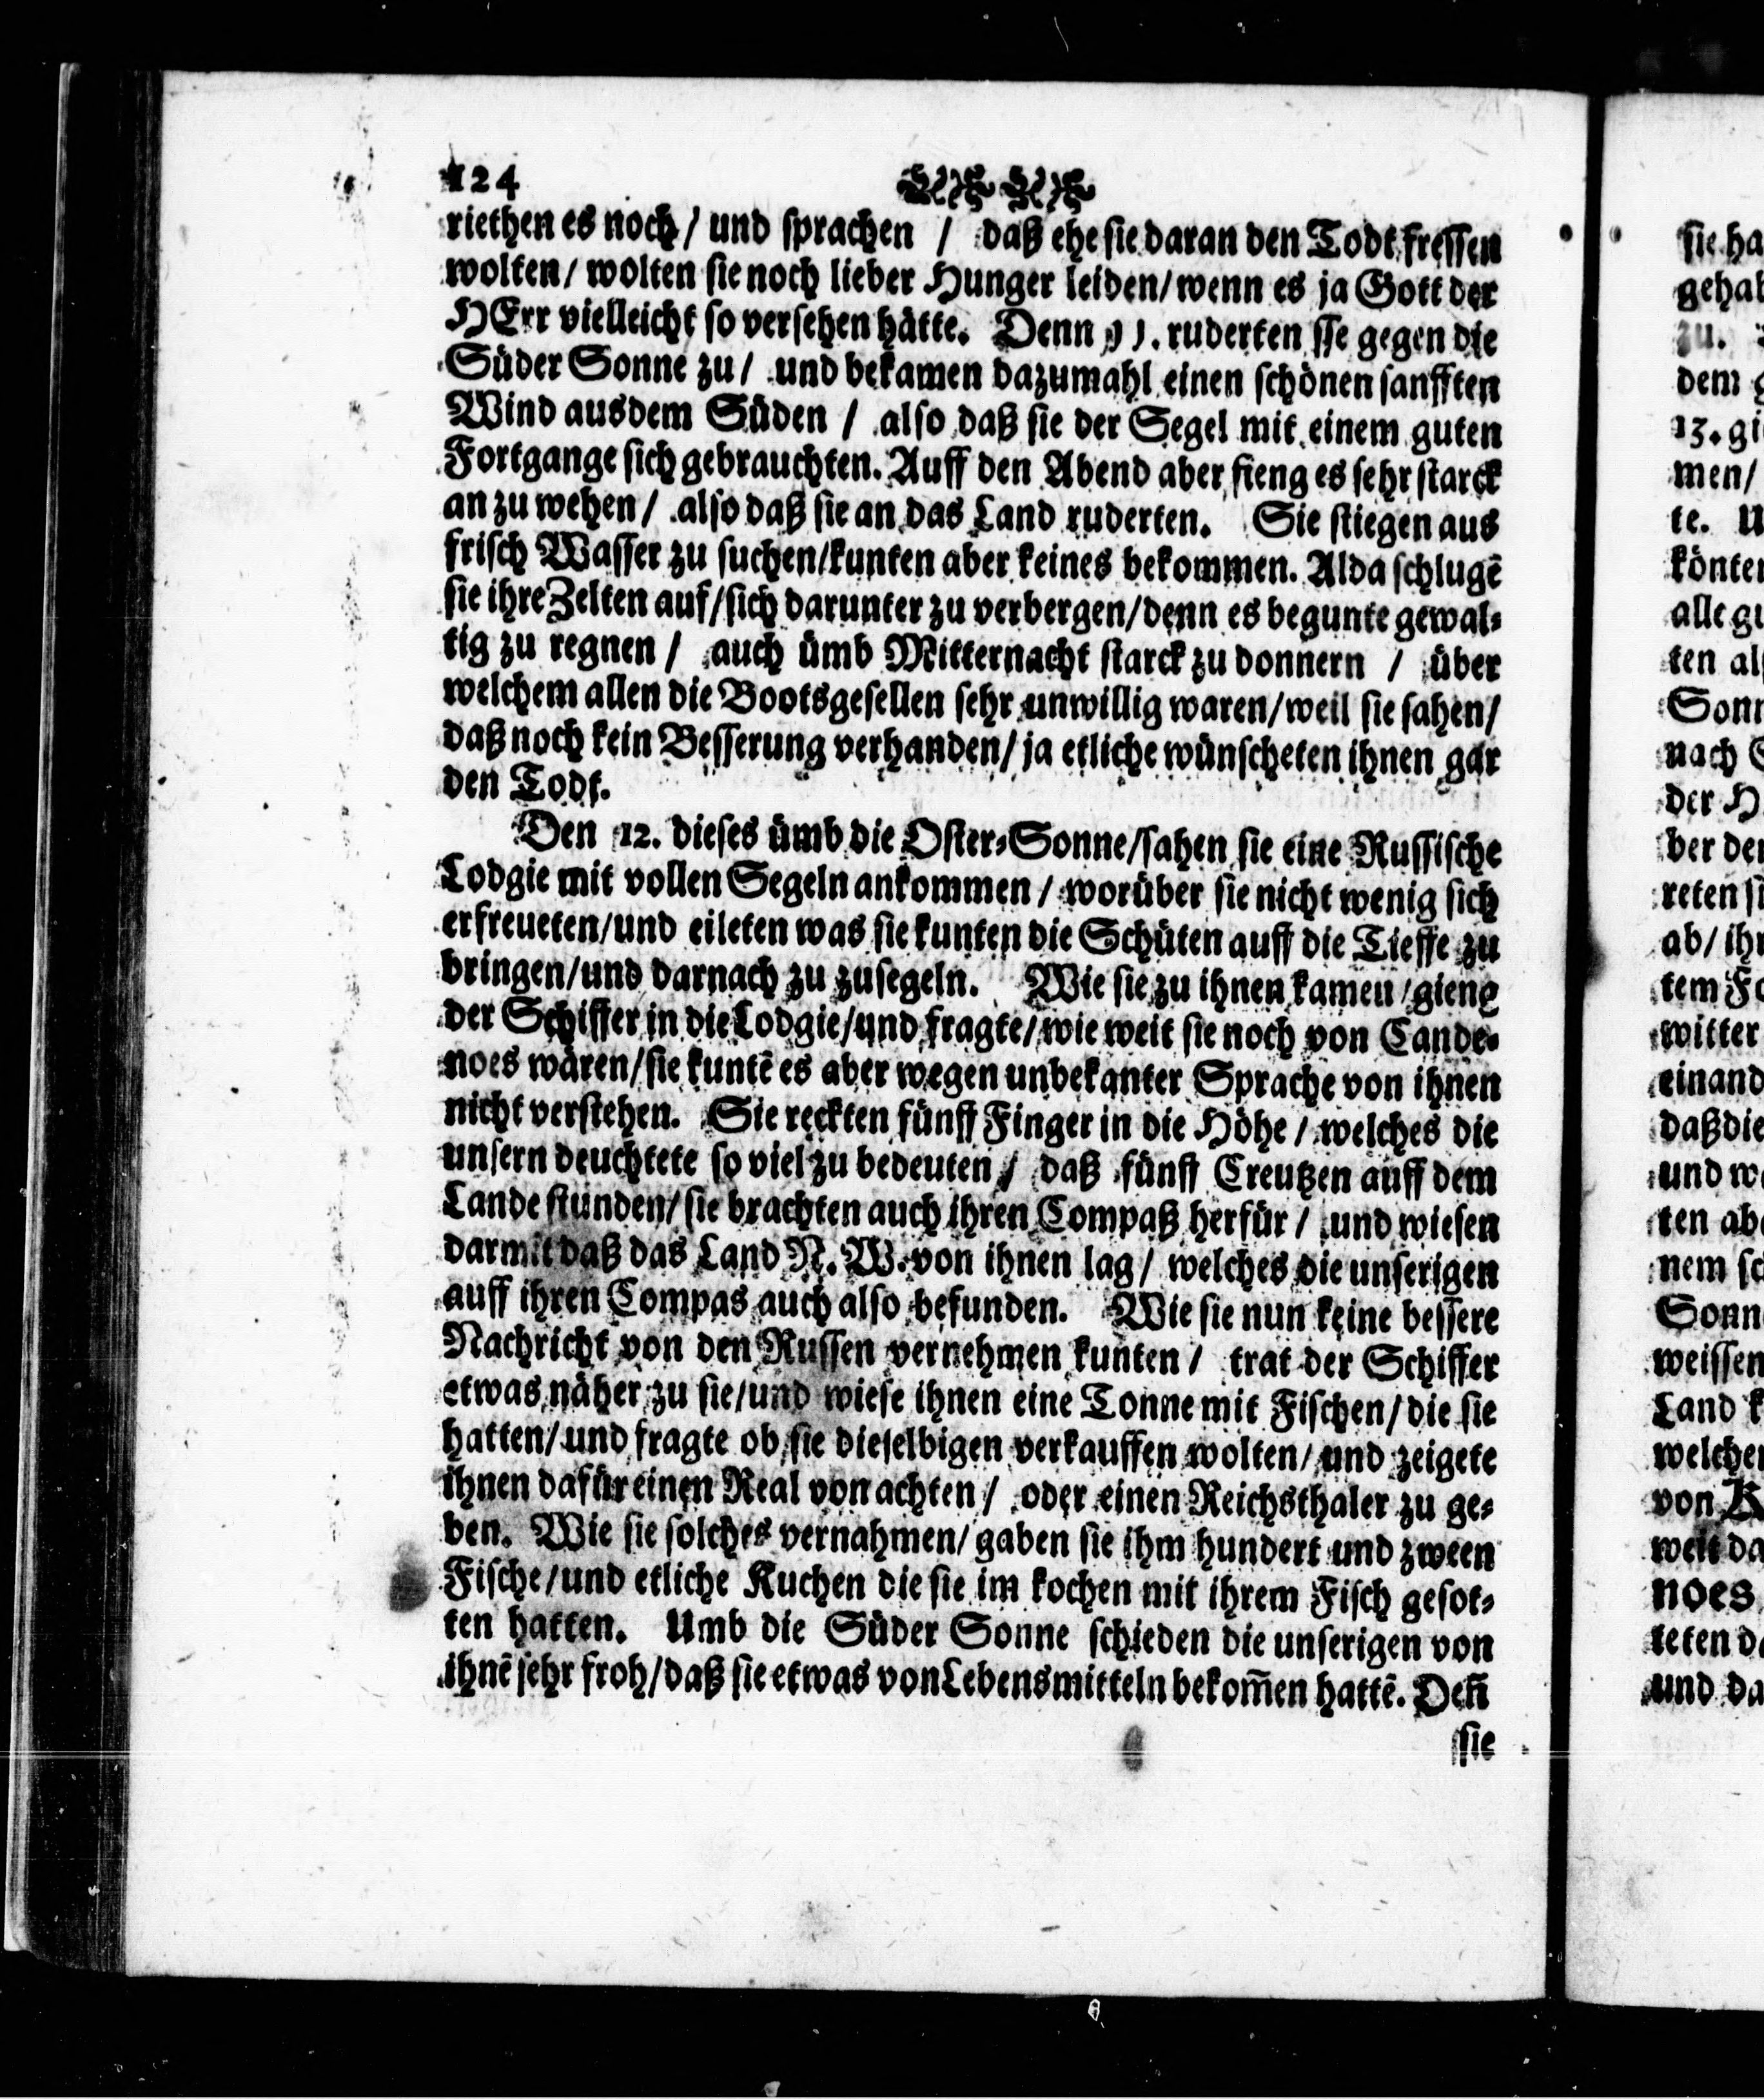 124
riethen es noch / und sprachen / daß ehe sie daran den Todt fressen
wolten / wolten sie noch lieber Hunger leiden / wenn es ja Gott der
HErr vielleicht so versehen hätte. Denn 11. ruderten sie gegen die
Süder Sonne zu / und bekamen dazumahl einen schönen sanfften
Wind aus dem Süden / also daß sie der Segel mit einem guten
Fortgange sich gebrauchten. Auff den Abend aber fieng es sehr starck
an zu wehen / also daß sie an das Land ruderten. Sie stiegen aus
frisch Wasser zu suchen / kunten aber keines bekommen. Alda schlugē
sie ihre Zelten auf / sich darunter zu verbergen / denn es begunte gewal-
tig zu regnen / auch ümb Mitternacht starck zu donnern / über
welchem allen die Bootsgesellen sehr unwillig waren / weil sie sahen /
daß noch kein Besserung verhanden / ja etliche wünscheten ihnen gar
den Todt.
Den 12. dieses ümb die Oster-Sonne / sahen sie eine Russische
Lodgie mit vollen Segeln ankommen / worüber sie nicht wenig sich
erfreueten / und eileten was sie kunten die Schüten auff die Tieffe zu
bringen / und darnach zu zusegeln. Wie sie zu ihnen kamen / gieng
der Schiffer in die Lodgie / und fragte / wie weit sie noch von Cande-
noes wären / sie kuntē es aber wegen unbekanter Sprache von ihnen
nicht verstehen. Sie reckten fünff Finger in die Höhe / welches die
unsern deuchtete so viel zu bedeuten / daß fünff Creutzen auff dem
Lande stunden / sie brachten auch ihren Compaß herfür / und wiesen
darmit daß das Land N. W. von ihnen lag / welches die unserigen
auff ihren Compas auch also befunden. Wie sie nun keine bessere
Nachricht von den Russen vernehmen kunten / trat der Schiffer
etwas näher zu sie / und wiese ihnen eine Tonne mit Fischen / die sie
hatten / und fragte ob sie dieselbigen verkauffen wolten / und zeigete
ihnen dafür einen Real von achten / oder einen Reichsthaler zu ge-
ben. Wie sie solches vernahmen / gaben sie ihm hundert und zween
Fische / und etliche Kuchen die sie im kochen mit ihrem Fisch gesot-
ten hatten. Umb die Süder Sonne schieden die unserigen von
ihnē sehr froh / daß sie etwas von Lebensmitteln bekom̄en hattē. Den̄
sie